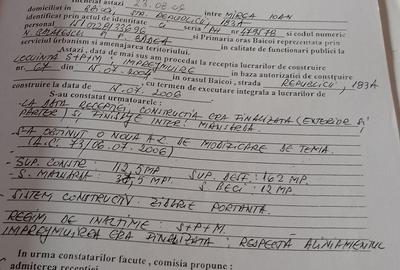 Incheiat astazi 23.08.06
domiciliat in BAICOI, STR REPUBLICII, 183A intre MIREA IOAN
identificat prin actul de identitate seria PH nr 479578 si codul numeric
personal
N. si Primaria oras Baicoi reprezentata prin
serviciul urbanism si amenajarea teritoriului. in calitate de functionari publici la
Astazi , data de mai sus am procedat la receptia lucrarilor de construire
LOCUINTA S+P+M ; IMPREJMUIRE in baza autorizatiei de construire
nr. 67 din 11.07.2004 in orasul Baicoi , strada REPUBLICII, 183A
construire la data de 11.07.2006 , cu termen de executare integrala a lucrarilor de
S-au constatat urmatoarele :
- LA DATA RECEPTIEI, CONSTRUCTIA ERA FINALIZATA (EXTERIOR SI
PARTER) SI FINISATE INTER. MANSARDA.
- S-A OBTINUT O NOUA A.C. DE MODIFICARE DE TEMA.
(A.C. 73/06.07.2006)
- SUP. CONSTR : 112,5 MP SUP. DESF. : 162 MP.
- S. MANSARDA : MP. S BECI : 12 MP
- SISTEM CONSTRUCTIV : ZIDARIE PORTANTA.
REGIM DE INALTIME S+P+M.
IMPREJMUIREA ERA FINALIZATA : RESPECTA ALINIAMENTUL
In urma constatarilor facute , comisia propune :
admiterea receptiei